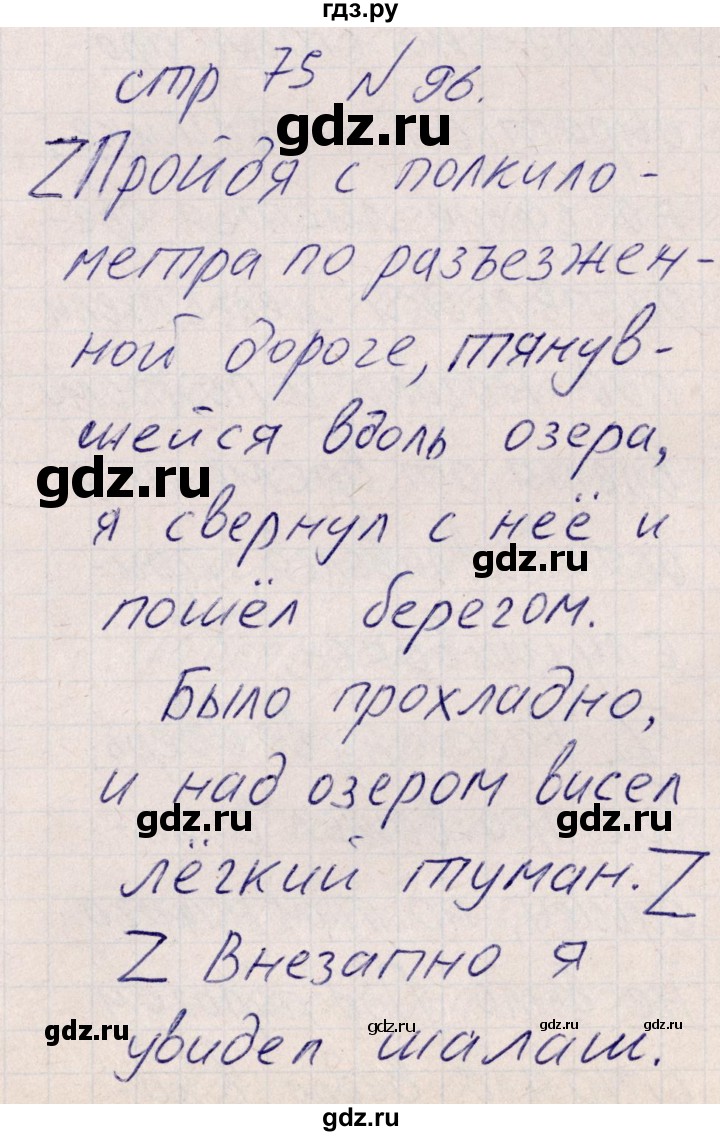 гдз.ру
стр 75 № 96.
gdz.ru
Z Пройдя с полкило-
метра по разъезжен-
ной дороге, тянув-
шейся вдоль озера,
gdz.ru
я свернул с неё и
gdz.ru
пошёл берегом.
Было прохладно,
и над озером висел
gdz.ru gdz.ru
лёгкий туман. Z
Z Внезапно я
gdz.ru gdz.ru gdz.ru gdz.ru
увидел шалаш.
gdz.ru